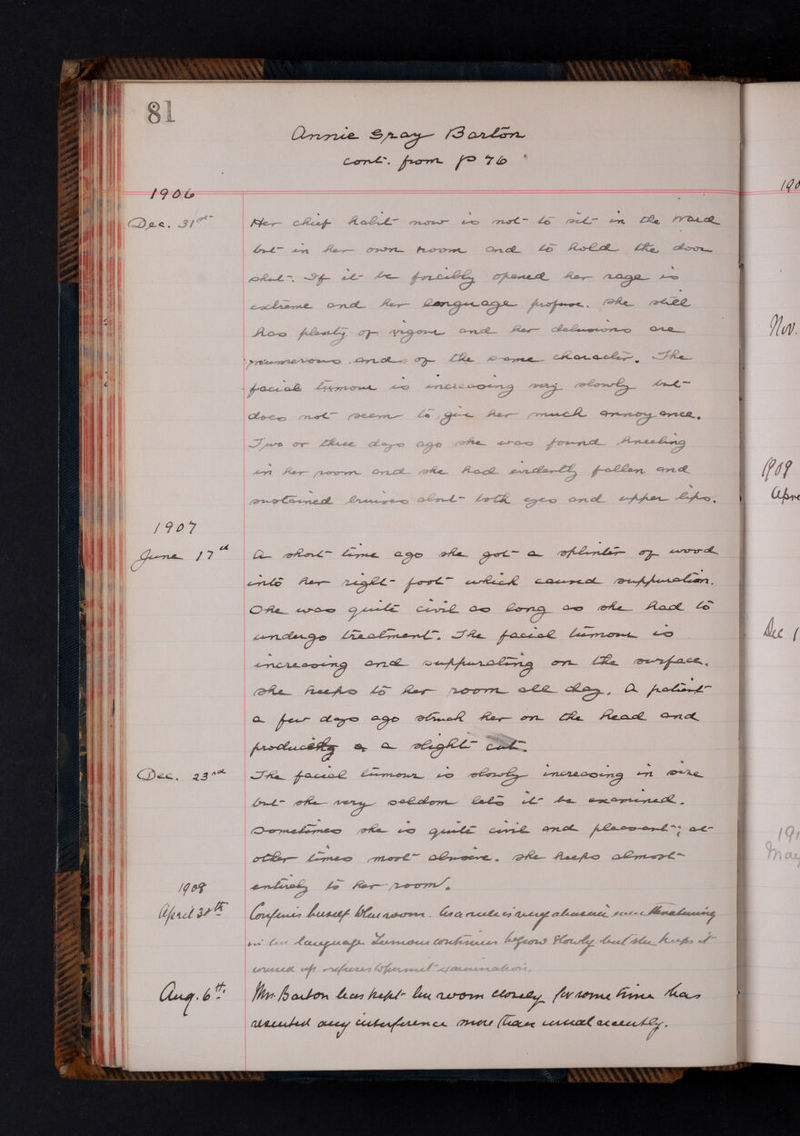 81
Annie Spray Barton
cont. from p 76
1906
Dec. 31st Her chief habit now is not to sit in the ward
but in her own room and to hold the door
shut. If it be forcibly opened her rage is
extreme and her language profuse. She still
has plenty of vigour and her delusions are
numerous and of the same character. The
facial tumour is increasing very slowly but
does not seem to give her much annoyance.
Two or three days ago she was found kneeling
in her room and she had evidently fallen and
sustained bruises about both eyes and upper lips.
1907
June 17th A short time ago she got a splinter of wood
into her right foot which caused suppuration.
She was quite civil as long as she had to
undergo treatment. The facial tumour is
increasing and suppurating on the surface.
She keeps to her room all day. A patient
a few days ago struck her on the head and
a slight cut.
Dec. 23rd The facial tumour is slowly increasing in size
but she very seldom lets it be examined.
Sometimes she is quite civil and pleasant; at
other times most abusive. She keeps almost
1908
entirely to her room.
April 30th Confines herself to her room. As a rule is very abusive and threatening
in her language. Tumour continues to grow slowly but she keeps it
covered up & refuses to permit examination.
Aug. 6th. Mrs. Barton has kept her room closely for some time has
resented any interference more than usual recently.
190
Nov.
1909
Apr
Dec 1
191
May